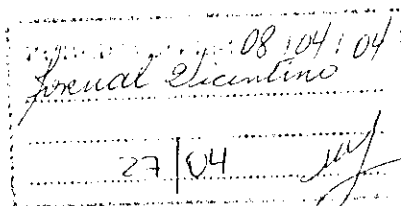 08/04/04
Jornal Vicentino
27/04